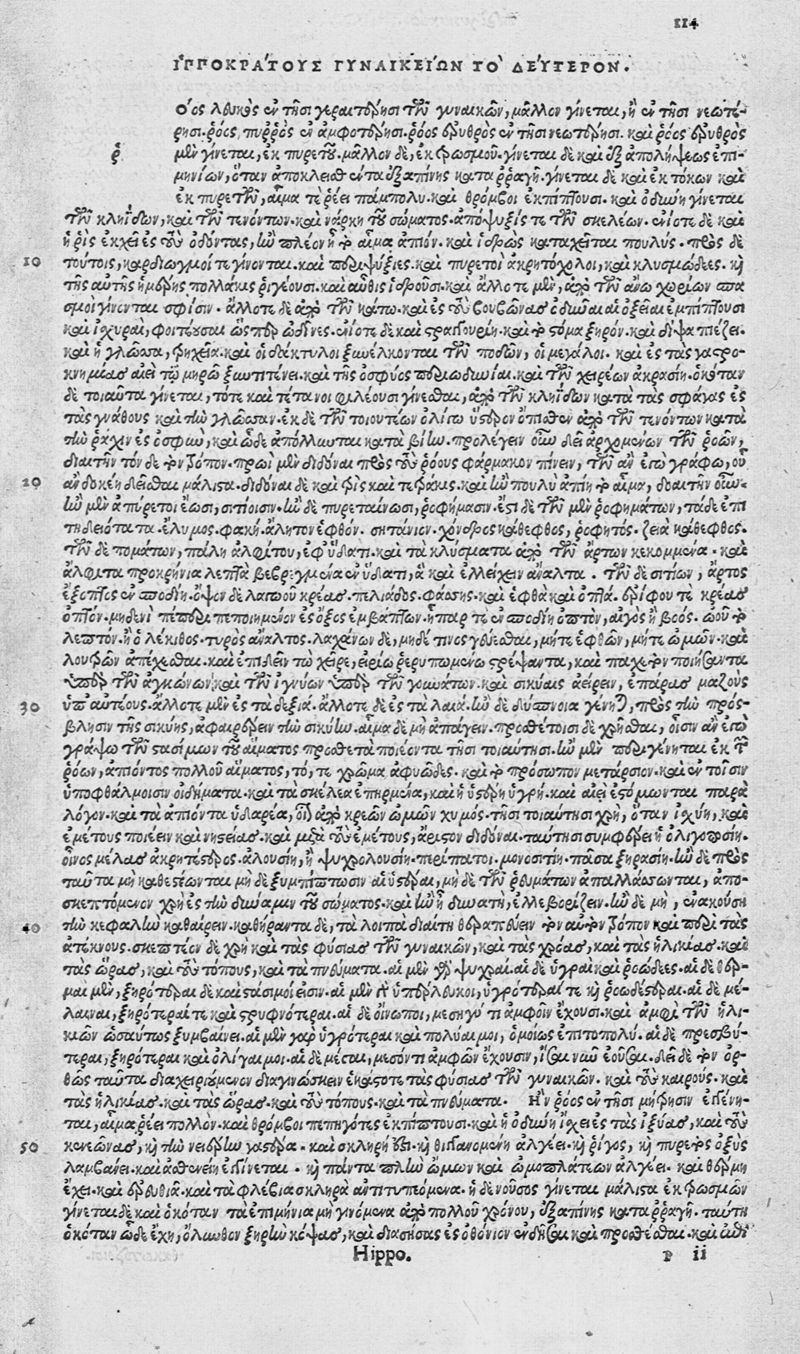 114
ΙΠΠΟΚΡΑΤΟΥΣ ΓΥΝΑΙΚΕΙΩΝ ΤΟ ΔΕΥΤΕΡΟΝ.
Ῥόος λευκὸς ἐν τῇσι γεραιτέρῃσι τῶν γυναικῶν, μᾶλλον γίνεται, ἢ ἐν τῇσι νεωτέ-
ρῃσι. ῥόος πυῤῥὸς ἐν ἀμφοτέρῃσι. ῥόος ἐρυθρὸς ἐν τῇσι νεωτέρῃσι. καὶ ῥόος ἐρυθρὸς
μὲν γίνεται, ἐκ πυρετοῦ. μᾶλλον δὲ, ἐκ τρωσμοῦ. γίνεται δὲ καὶ ἐξ ἀπολήψεως ἐπι-
μηνίων, ὅταν ἀποκλεισθέντα ἐξαπίνης καταῤῥαγῇ. γίνεται δὲ καὶ ἐκ τόκων καὶ
ἐκ πυρετῶν, αἷμα τε ῥέει πάμπολυ. καὶ θρόμβοι ἐκπίπτουσι. καὶ ὀδύνη γίνεται
τῶν κληΐδων, καὶ τῶν τενόντων. καὶ νάρκη τοῦ σώματος. ἀπόψυξίς τε τῶν σκελέων. ἐνίοτε δὲ καὶ
ἡ ῥὶς ἐκχεῖ ἐς τοὺς ὀδόντας, ἢν πλέον ᾖ τὸ αἷμα ἀπιόν. καὶ ἱδρὼς καταχεῖται πουλύς. πρὸς δὲ
10 τούτοις, καρδιωγμοί τε γίνονται. καὶ περιψύξιες. καὶ πυρετοὶ ἀκρητόχολοι, καὶ κλυσμώδεες. καὶ
τῆς αὐτῆς ἡμέρης πολλάκις ῥιγέουσι. καὶ αὖθις ἱδροῦσι. καὶ ἄλλοτε μὲν, ἀπὸ τῶν ἄνω χωρίων σπα
σμοὶ γίνονται σφίσιν. ἄλλοτε δὲ ἀπὸ τῶν κάτω. καὶ ἐς τοὺς βουβῶνας ὀδύναι αἱ ὀξεῖαι ἐμπίπτουσι
καὶ ἰσχυραὶ, φοιτέουσαι ὥσπερ ὠδῖνες. ἐνίοτε δὲ καὶ στραγγουρίη. καὶ τὸ στόμα ξηρόν. καὶ δίψα πιέζει.
καὶ ἡ γλῶσσα, τρηχεῖα. καὶ οἱ δάκτυλοι ξυνέλκονται τῶν ποδῶν, οἱ μεγάλοι. καὶ ἐς τὰς γαστρο-
κνημίας αἰεὶ τῷ μηρῷ ξυντιτένει. καὶ τῆς ὀσφύος περιωδυνίαι. καὶ τῶν χειρέων ἀκρασίη. ὁκόταν
δὲ τοιαῦτα γίνεται, τότε καὶ τέτανοι φιλέουσι γίνεσθαι, ἀπὸ τῶν κληΐδων κατὰ τὰς σφαγὰς ἐς
τὰς γνάθους καὶ τὴν γλῶσσαν. ἐκ δὲ τῶν τοιουτέων ὀλίγῳ ὕστερον ὄπισθεν ἀπὸ τῶν τενόντων κατὰ
τὴν ῥάχιν ἐς ὀσφὺν, καὶ ὧδε ἀπόλλυνται κατὰ βίην. προλέγειν οὖν δεῖ ἀρχομένων τῶν ῥοῶν,
διαιτῆν τόνδε τὸν τρόπον. πρωῒ μὲν διδόναι πρὸς τοὺς ῥόους φάρμακον πίνειν, τῶν ἂν ἐγὼ γράφω, οὗ
20 ἂν δοκέῃ δεῖσθαι μάλιστα. διδόναι δὲ καὶ τρὶς καὶ τετράκις. καὶ ἢν πουλὺ ἀπίῃ τὸ αἷμα, διαιτῆν οὖν.
ἢν μὲν ἀπυρετοι ἔωσι, σιτίοισιν. ἢν δὲ πυρεταίνωσι, ῥοφήμασιν. ἔστι δὲ τῶν μὲν ῥοφημάτων, τάδε ἐπι
τηδειότατα. ἔλυμος. φακῆ. ἄλητον ἑφθόν. σητάνιον. χόνδρος κάθεφθος, ῥοφητός. ζειὰ κάθεφθος.
τῶν δὲ πομάτων, πάλη ἀλφίτου, ἐφ' ὕδατι. καὶ τὰ κλύσματα ἀπὸ τῶν ἄρτων κεκομμένα. καὶ
ἄλφιτα προκρήνια λεπτὰ βεβρεγμένα ἐν ὕδατι, ἃ καὶ ἐλλείχειν ἄναλτα. τῶν δὲ σιτίων, ἄρτος
ἔξοπτος ἐν σποδιῇ. ὄψον δὲ λαγωοῦ κρέας. πελιάδος. φάσσης. καὶ ἑφθὰ καὶ ὀπτά. ἐρίφου τε κρέας
ὀπτόν. μηδενὶ πέπερι πεποιημένον ἐς ὄξος ἐμβάπτων. ἧπάρ τε ἐν σποδιῇ ὀπτὸν, αἰγὸς ἢ βοός. ὠοῦ τὸ
λεπτόν. ἢ ὁ λέκιθος. τυρὸς ἄναλτος. λαχάνων δὲ, μηδέ τινος γεύεσθαι, μήτε ἑφθῶν, μήτε ὠμῶν. καὶ
λουτρῶν ἀπέχεσθαι. καὶ ἐπιδεῖν τὼ χεῖρε, εἰρίῳ ῥερυπωμένῳ στρέψαντα, καὶ παχὺ τὸν ποιήσαντα
ὑπὲρ τῶν ἀγκώνων, καὶ τῶν ἰγνύων ὑπὲρ τῶν γουνάτων. καὶ σικύας ἀείρειν, ἐπάρας μαζοὺς
30 ὑπ' αὐτέους. ἄλλοτε μὲν ἐς τὰ δεξιά. ἄλλοτε δὲ ἐς τὰ λαιά. ἢν δὲ δύσπνοια γένηται, πρὸς τὴν πρόσ-
βλησιν τῆς σικύης, ἀφαιρέειν τὴν σικύην. αἷμα δὲ μὴ ἀπάγειν. προσθέτοισι δὲ χρῆσθαι, οἷσιν ἂν ἐγὼ
γράψω τῶν στασίμων τοῦ αἵματος προσθετὰ ποιέοντα τῇσι τοιαύτῃσι. ἢν μὲν περιγένηται ἐκ τῶν
ῥόων, ἀπιόντος πολλοῦ αἵματος, τό, τε χρῶμα ἀφυῶδες. καὶ τὸ πρόσωπον μετάρσιον. καὶ ἐν τοῖσιν
ὑποφθάλμοισιν οἰδήματα. καὶ τὰ σκέλεα ἐπηρμένα, καὶ ἡ ὑστέρη ὑγρή. καὶ αἰεὶ ἐξόμωνται παρὰ
λόγον. καὶ τὰ ἀπιόντα ὑδαρέα, οἷον ἀπὸ κρεῶν ὠμῶν χυμός. τῇσι τοιαύτῃσι χρὴ, ὅταν ἰσχύῃ, καὶ
ἐμέτους ποιέειν καὶ νηστείας. καὶ μετὰ τοὺς ἐμέτους, ἄριστον διδόναι. ταύτῃσι συμφέρει ἡ ὀλιγοποσίη.
οἶνος μέλας ἀκρητέστερος. ἀλουσίη, ἢ ψυχρολουσίη. περίπατοι. μονοσιτίη. πᾶσα ξηρασίη. ἢν δὲ πρὸς
ταῦτα μὴ καθεστέωνται μὴ δὲ ξυμπίπτωσιν αἱ ὑστέραι, μὴ δὲ τῶν ῥευμάτων ἀπαλλάσσωνται, ἀπο-
σκεπτόμενον χρὴ ἐς τὴν δύναμιν τοῦ σώματος. καὶ ἢν ᾖ δυνατὴ, ἐλλεβορίζειν. ἢν δὲ μὴ, ἐνακούσῃ
40 τὴν κεφαλὴν καθαίρειν. καθήραντα δὲ, τὰ λοιπὰ διαίτῃ θεραπεύειν τὸν αὐτὸν τρόπον καὶ περὶ τὰς
ἀτέκνους. σκεπτέον δὲ χρὴ καὶ τὰς φύσιας τῶν γυναικῶν, καὶ τὰς χρόας, καὶ τὰς ἡλικίας. καὶ
τὰς ὥρας, καὶ τοὺς τόπους, καὶ τὰ πνεύματα. αἱ μὲν γὰρ ψυχραὶ. αἱ δὲ ὑγραὶ καὶ ῥοώδεες. αἱ δὲ θερ-
μαὶ μὲν, ξηρότεραι δὲ καὶ στάσιμοί εἰσιν. αἱ μὲν γὰρ ὑπέρλευκοι, ὑγρότεραί τε καὶ ῥοωδέστεραι. αἱ δὲ μέ-
λαιναι, ξηρότεραί τε καὶ στρυφνότεραι. αἱ δὲ οἰνωποὶ, μεσηγύ τι ἀμφοῖν ἔχουσι. καὶ ἀμφὶ τῶν ἡλι-
κιῶν ὡσαύτως ξυμβαίνει. αἱ μὲν γὰρ ὑγρότεραι καὶ πολύαιμοι, ὁμοίως ἐπιτοπολύ. αἱ δὲ πρεσβύ-
τεραι, ξηρότεραι καὶ ὀλίγαιμοι. αἱ δὲ μέσαι, μέσόν τι ἀμφῶν ἔχουσιν, ἴσαι νῦν ἐοῦσαι. δεῖ δὲ τὸν ὀρ-
θῶς ταῦτα διαχειριζόμενον διαγινώσκειν ἑκάστοτε τὰς φύσιας τῶν γυναικῶν. καὶ τοὺς καιροὺς. καὶ
τὰς ἡλικίας. καὶ τὰς ὥρας. καὶ τοὺς τόπους. καὶ τὰ πνεύματα. Ἢν ῥόος ἐν τῇσι μήτρῃσιν ἐγγένη-
ται, αἷμα ῥέει πολλὸν. καὶ θρόμβοι πεπηγότες ἐκπίπτουσι. καὶ ἡ ὀδύνη ἴσχει ἐς τὰς ἰξύας, καὶ τοὺς
50 κενεῶνας, καὶ τὴν νειαίρην γαστέρα. καὶ σκληρὴ γίνεται. καὶ θιγγανομένη ἀλγέει. καὶ ῥῖγος, καὶ πυρετὸς ὀξὺς
λαμβάνει. καὶ ἀσθενείη ἐγγίνεται. καὶ πάντα πλὴν ὤμων καὶ ὠμοπλάτων ἀλγέει. καὶ θέρμη
ἔχει. καὶ ἐρευθιᾷ. καὶ τὰ φλέβια σκληρὰ ἀντιτυπεόμενα. ἡ δὲ νοῦσος γίνεται μάλιστα ἐκ τρωσμῶν
γίνεται δὲ καὶ ὁκόταν τὰ ἐπιμήνια μὴ γινόμενα ἀπὸ πολλοῦ χρόνου, ἐξαπίνης καταῤῥαγῇ. ταύτῃ
ὁκόταν ὧδε ἔχῃ, ὄλυνθον ξηρὴν κόψας, καὶ διασήσας ἐς ὀθόνιον ἐνδῆσαι καὶ προσθέσθαι. καὶ ἀπὸ
Hippo. P ii